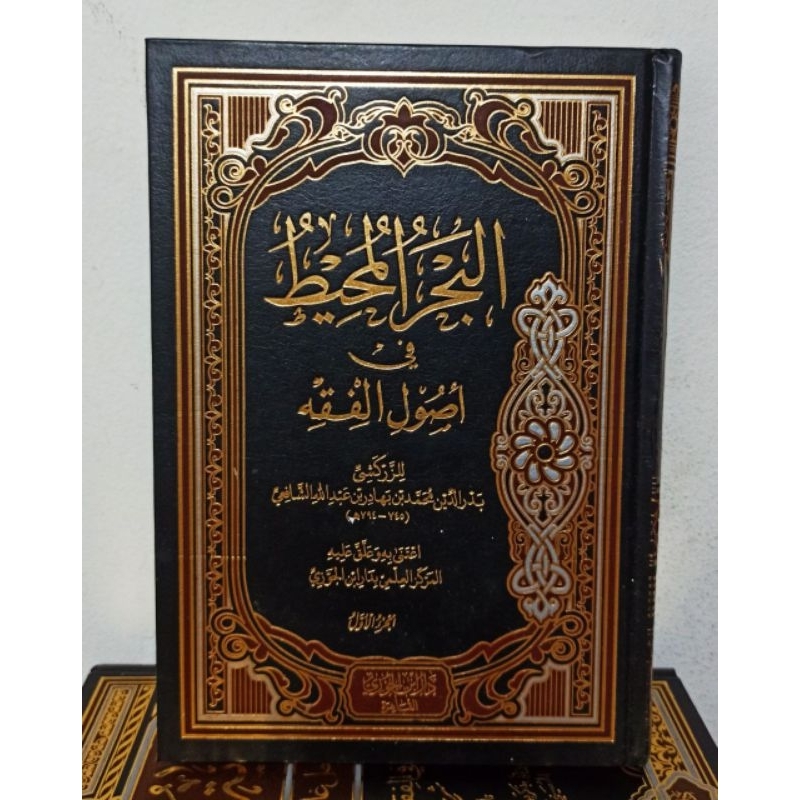 البَحْرُ المُحِيْطُ
في
أصُوْلِ الفِقْهِ
للزَّرْكَشِيِّ
بَدرِ الدِّيْن مُحَمَّد بْن بَهَادِر بْن عَبْدِ اللهِ الشَّافِعِيِّ
(٧٤٥-٧٩٤هـ)
اعْتَنَى بِهِ وَعَلَّقَ عَلَيهِ
المَركَز العِلْمِي بِدَارِ ابْنِ الجَوْزِيِّ
الجُزءُ الأَوَّلُ
دار ابن الجوزي
القاهرة